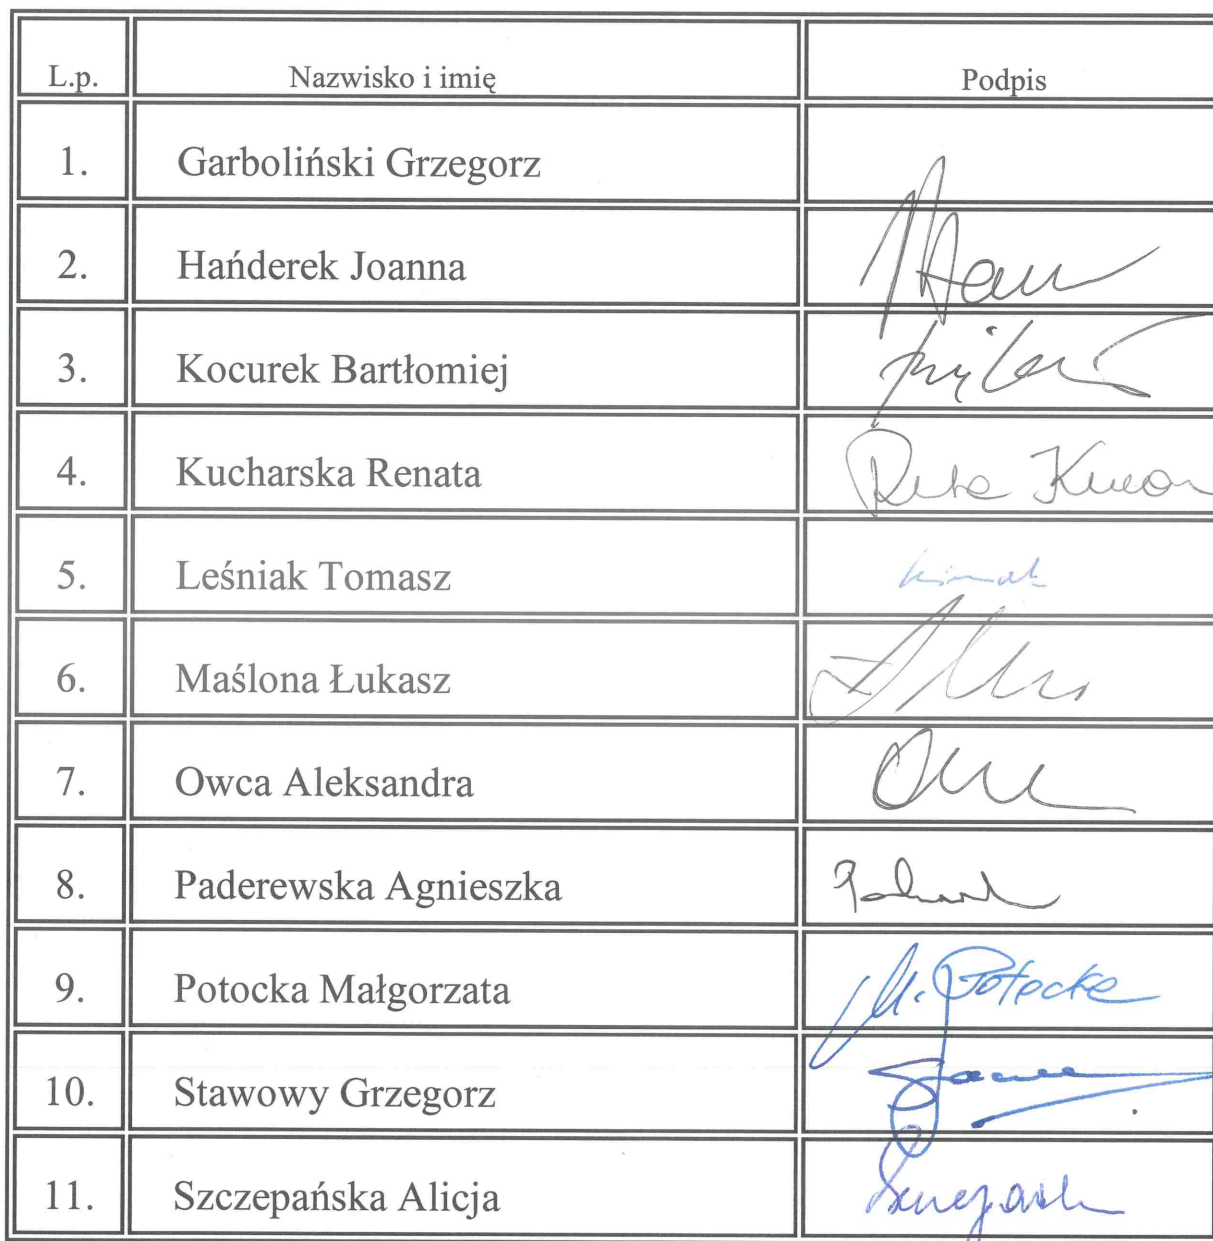 L.p. Nazwisko i imię Podpis
1. Garboliński Grzegorz
2. Hańderek Joanna
3. Kocurek Bartłomiej
4. Kucharska Renata
5. Leśniak Tomasz
6. Maślona Łukasz
7. Owca Aleksandra
8. Paderewska Agnieszka
9. Potocka Małgorzata M. Potocka
10. Stawowy Grzegorz
11. Szczepańska Alicja